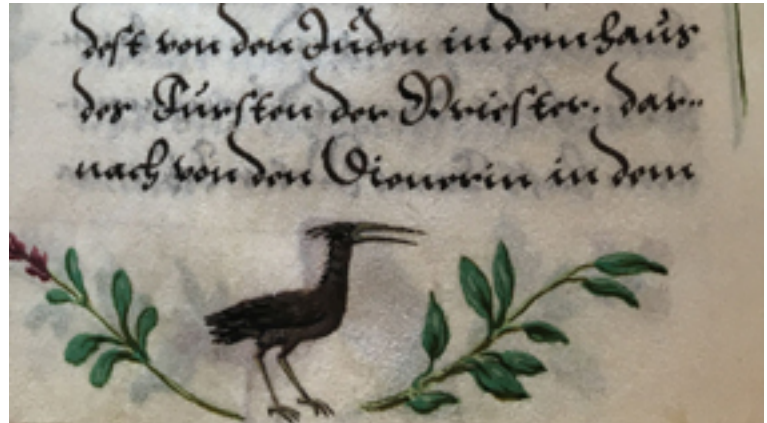 dest von den Juden in dem haus
des Fürsten der Priester. dar-
nach von den Dienerin in dem